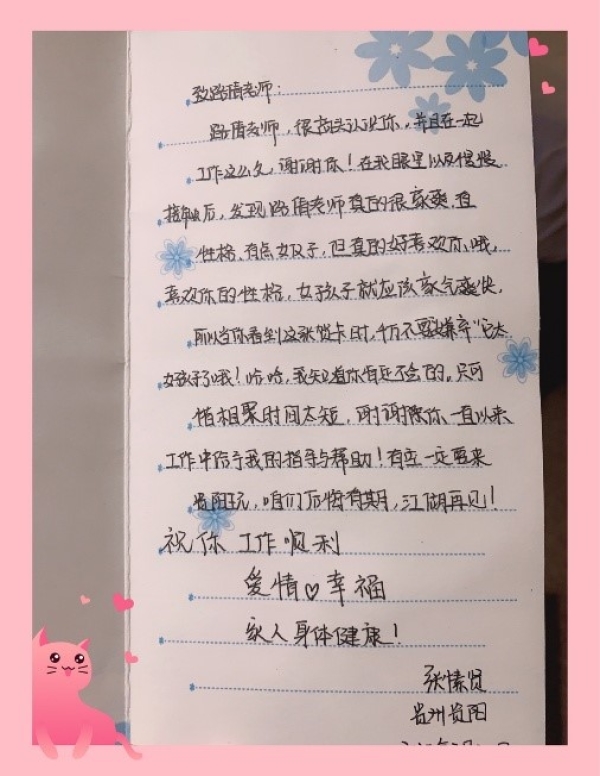 致路倩老师：
路倩老师，很高兴认识你，并且在一起
工作这么久，谢谢你！在我眼里以及慢慢
接触后，发现路倩老师真的很豪爽，直
性格，有点女汉子，但真的好喜欢你哦，
喜欢你的性格，女孩子就应该豪气爽快，
所以当你看到这张贺卡时，千万不要嫌弃"它太
好孩子"哦！哈哈，我知道你肯定不会的，只可
惜相聚时间太短，谢谢你一直以来
工作中给予我的指导与帮助！有空一定要来
贵阳玩，咱们后悔有期，江湖再见！
祝你 工作顺利
爱情♡幸福
家人身体健康！
张愫贤
贵州贵阳